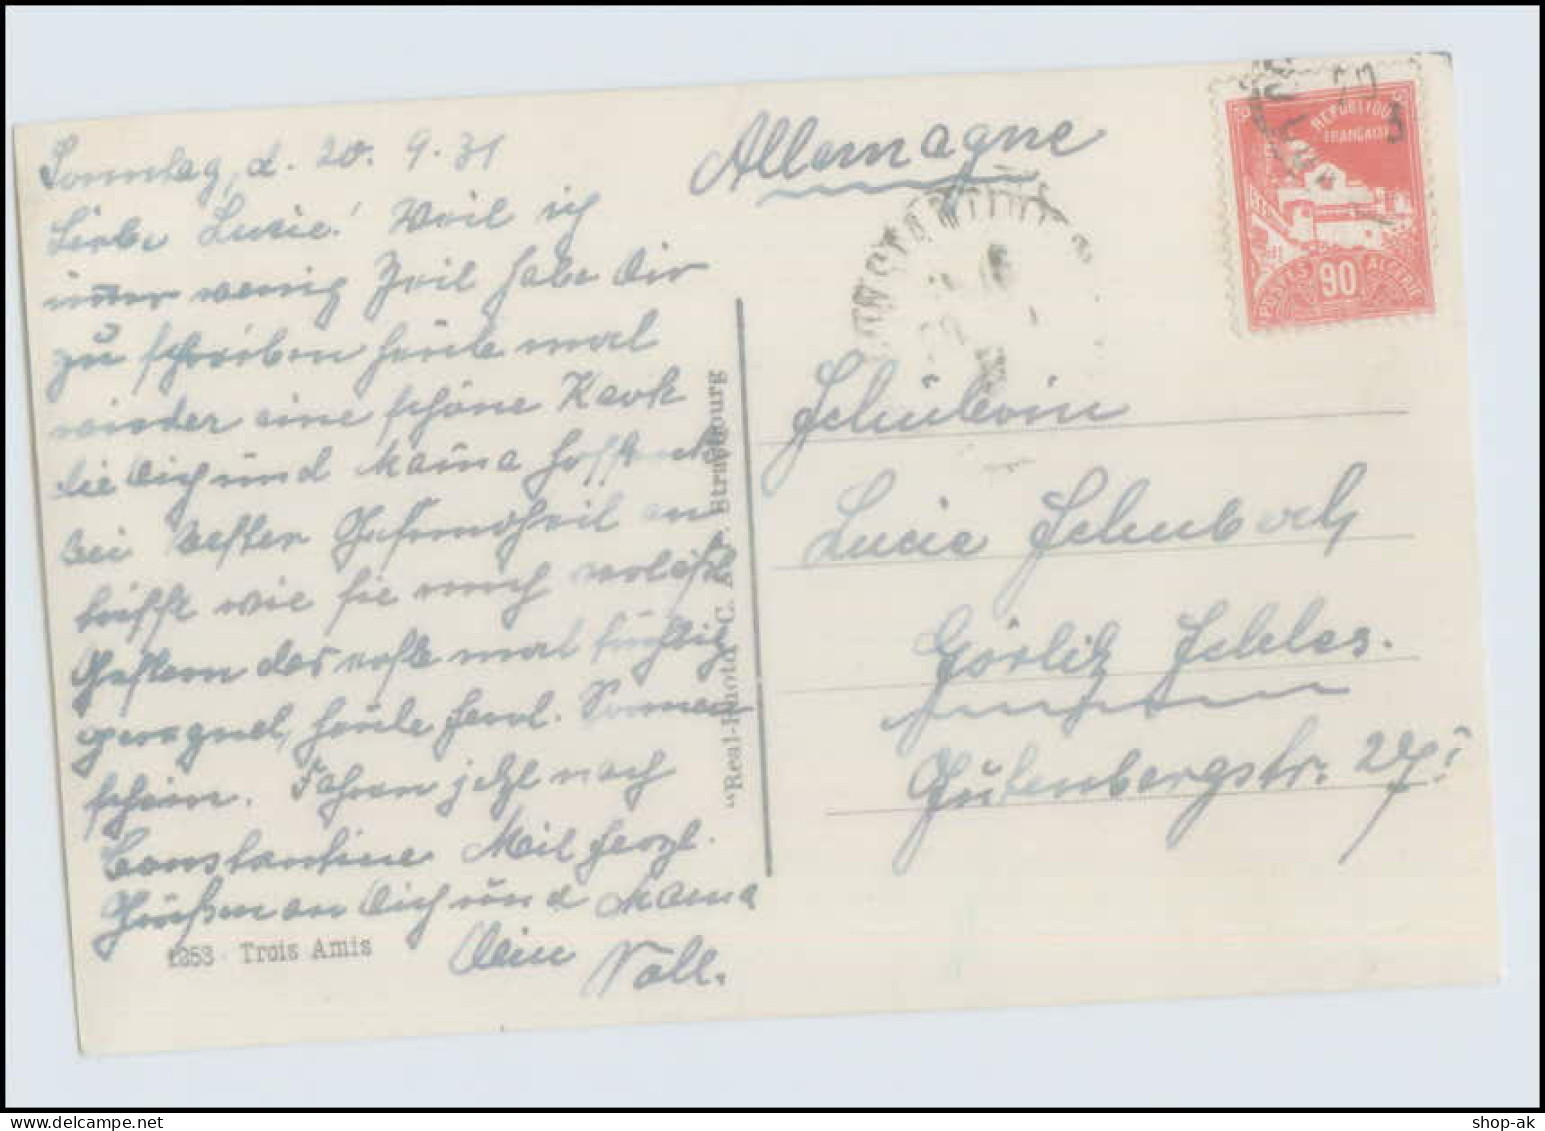 Sonntag, d. 20. 9. 31
Liebe Luzie! Weil ich
immer wenig Zeil habe Dir
zu schreiben heute mal
wieder eine schöne Kart
die Dich und Mama hoffentl.
bei bester Gesundheil an
trifft wie sie mich verläßt
Gestern das erste mal tüchtig
geregnet, heute herrl. Sonnen
schein. Fahren jetzt nach
Constantine Mit herzl.
Grüßen an Dich und Mama
Dein
1253 - Trois Amis
"Real-Photo" C. A. P. Strasbourg
Allemagne
CONSTANTINE
REPUBLIQUE
FRANCAISE
POSTES 90 ALGERIE
Fräulein
Lucie Schubach
Görlitz Schles.
Gutenbergstr. 27I
shop-ak